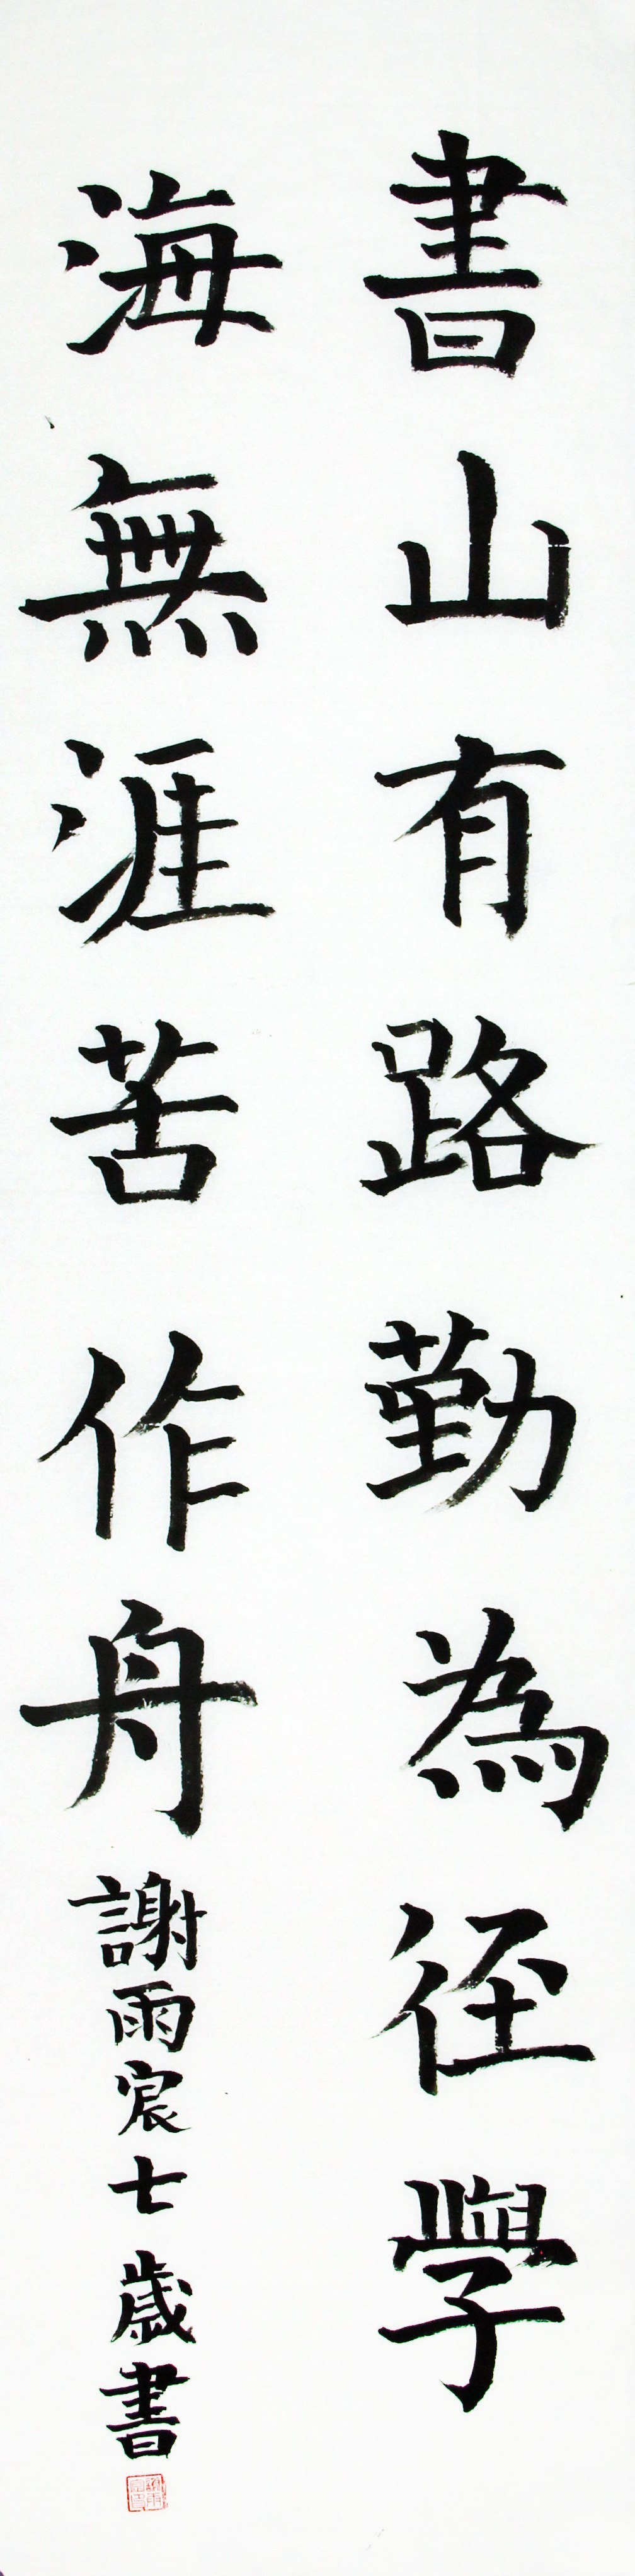 書山有路勤為径學
海無涯苦作舟
謝雨宸七歲書